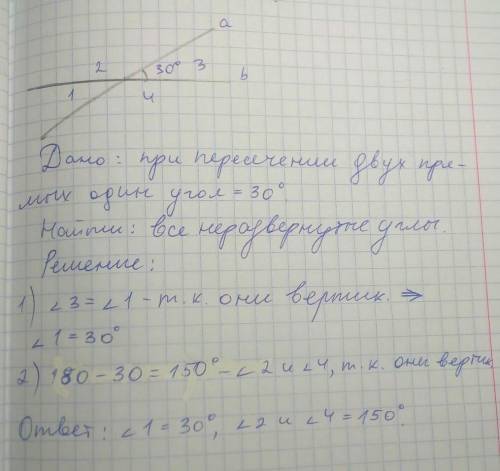 a
2 30° 3 b
1 4
Дано: при пересечении двух пря-
мых один угол = 30°
Найти: все неразвернутые углы.
Решение:
1) ∠3 = ∠1 - т.к. они вертик. ⇒
∠1 = 30°
2) 180 - 30 = 150° - ∠2 и ∠4, т.к. они вертик
Ответ: ∠1 = 30°, ∠2 и ∠4 = 150°.